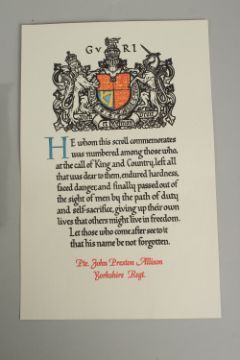 GVRI
HE whom this scroll commemorates
was numbered among those who,
at the call of King and Country, left all
that was dear to them, endured hardness,
faced danger, and finally passed out of
the sight of men by the path of duty
and self-sacrifice, giving up their own
lives that others might live in freedom.
Let those who come after see to it
that his name be not forgotten.
Pte. John Preston Allison
Yorkshire Regt.